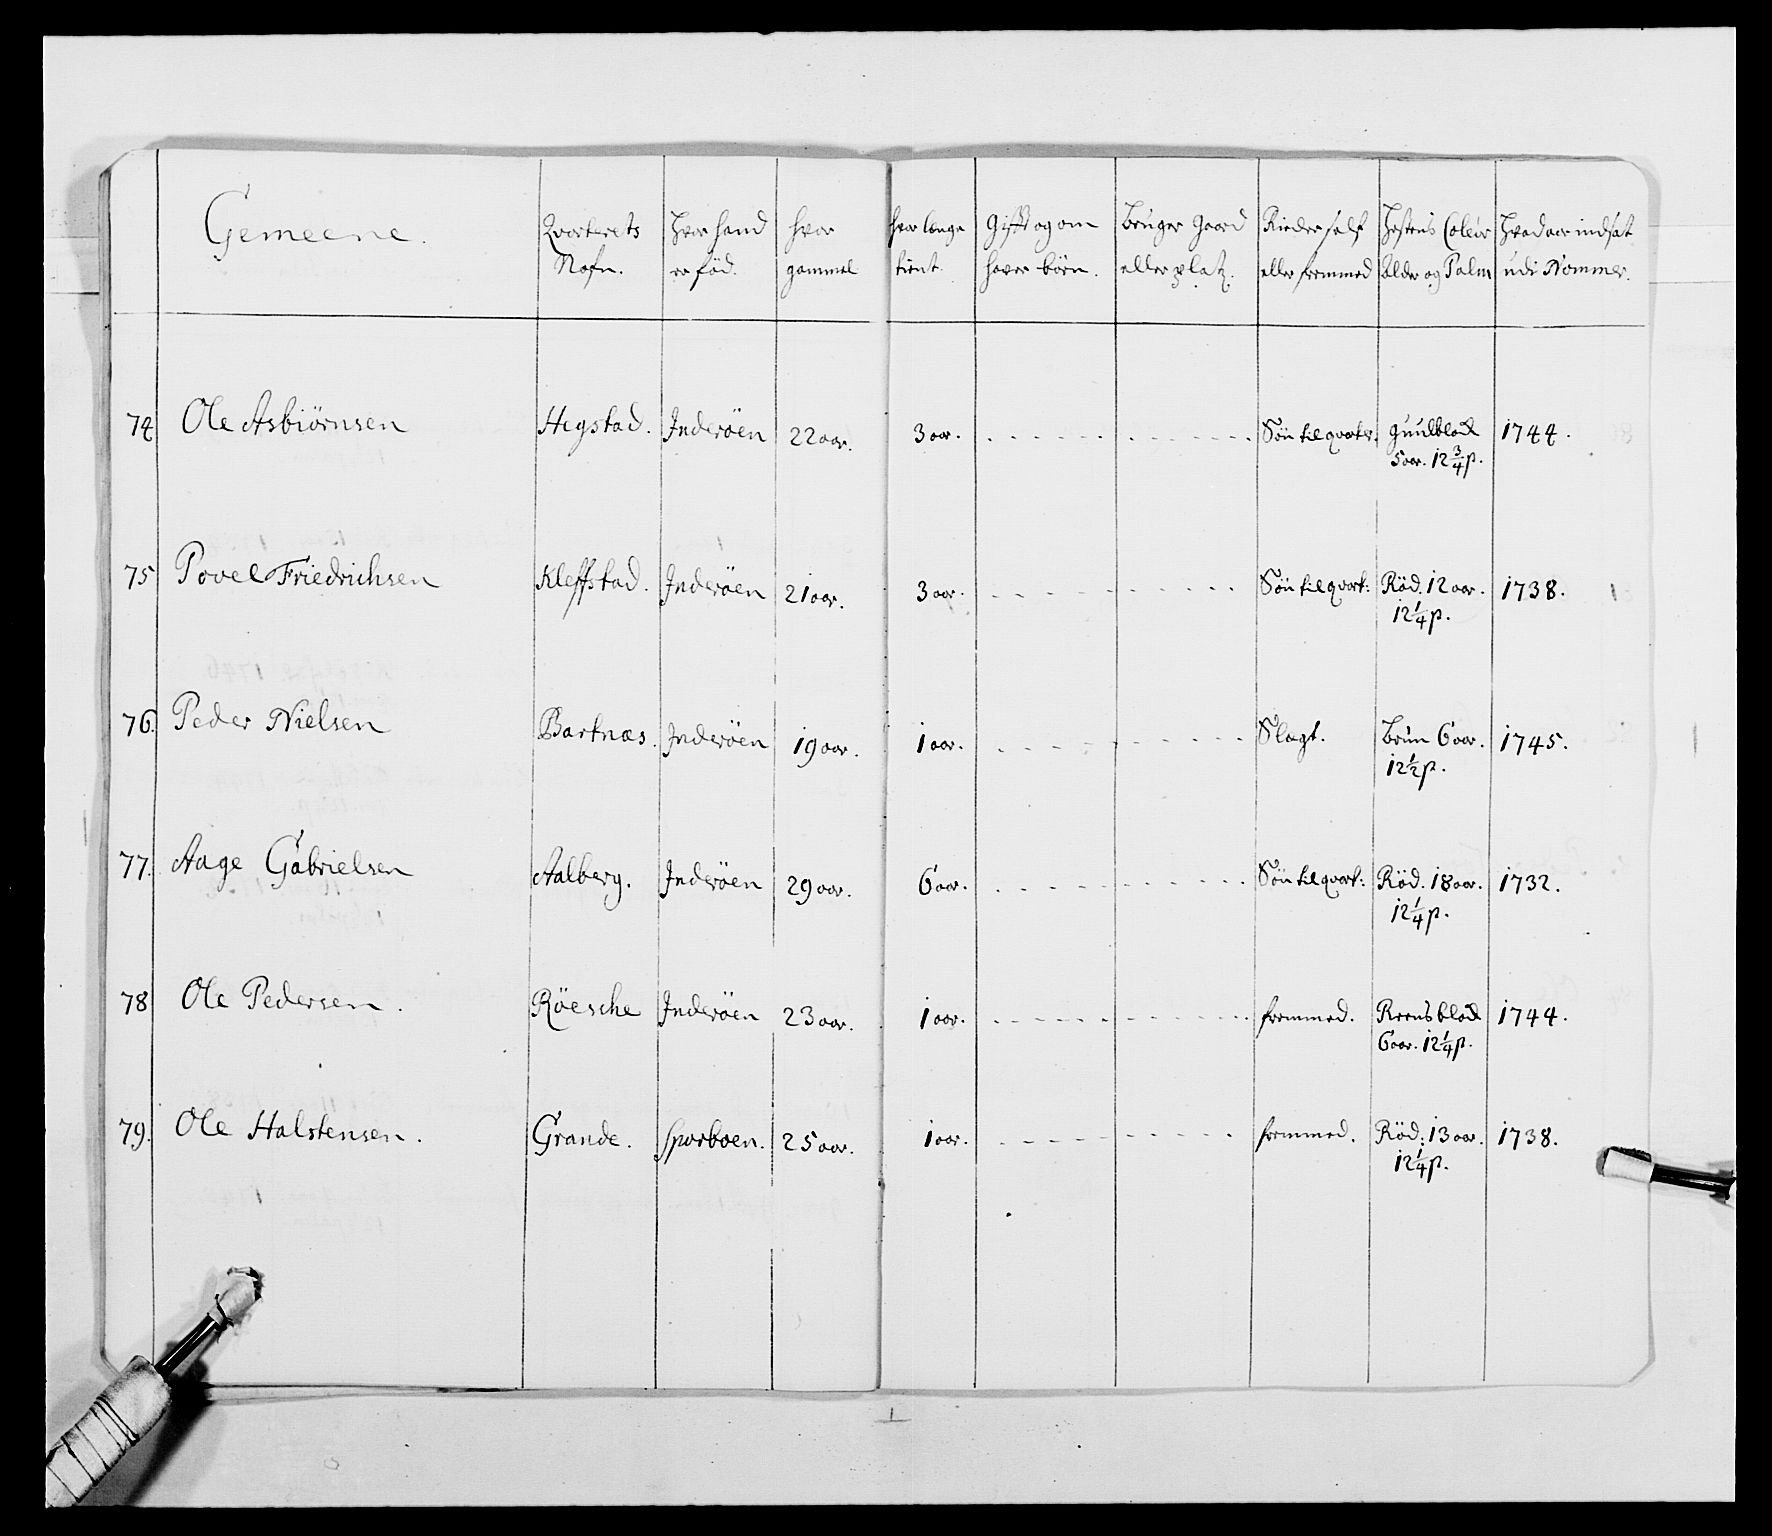 Gemeene. Qvarterets Nafn. Hvor hand er föd. hvor gammel hvor lenge tient. Gifft og om haver börn. Bruger Gaard eller platz. Rieder self eller fremmed Hestens Coleur Alder og Palm Hvad aar indsat udi Nommer.
74 Ole Asbiörnsen Hegstad. Inderöen 22 aar. 3 aar. Sön til qvarter. guulblak 5 aar. 12 3/4 p. 1744.
75 Povel Friedrichsen Kleffstad. Inderöen 21 aar. 3 aar. Sön til qvart: Röd. 12 aar. 12 1/4 p. 1738.
76. Peder Nielsen Bartnæs. Inderöen 19 aar. 1 aar. Slagt. Brun 6 aar. 12 1/2 p. 1745.
77. Aage Gabrielsen Aalberg. Inderöen 29 aar. 6 aar. Sön til qvart: Röd. 18 aar. 12 1/4 p. 1732.
78 Ole Pedersen. Röesche Inderöen 23 aar. 1 aar. fremmed. Reensblak 6 aar. 12 1/4 p. 1744.
79. Ole Halstensen. Grande. Sparboen. 25 aar. 1 aar. fremmed. Röd: 13 aar. 12 1/4 p. 1738.